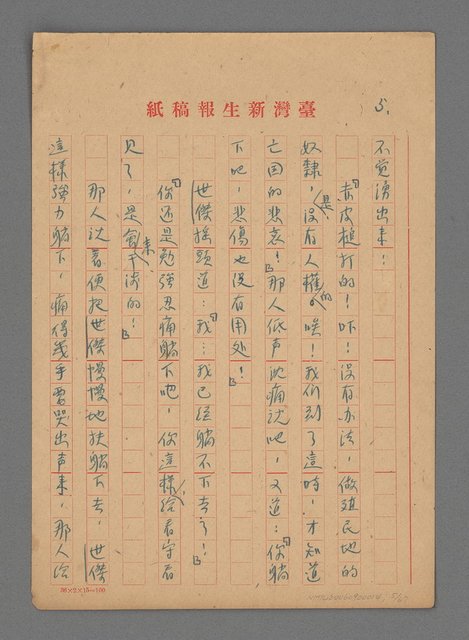 臺灣新生報稿紙
5.
不觉湧出来!
「赤皮槌打的!吓!没有办法,做殖民地的
奴隸,是没有人權的。唉!我们到了這時,才知道
亡国的悲哀!」那人低声沈痛说吧,又道:「你躺
下吧,悲傷也没有用处!」
世傑摇頭道:「我…我已經躺不下去了!」
「你还是勉強忍痛躺下吧,你這樣,給看守看
見了,是會来干涉的!」
那人说着便把世傑慢慢地扶躺下去,世傑
這樣強力躺下,痛得幾乎要哭出声来,那人給